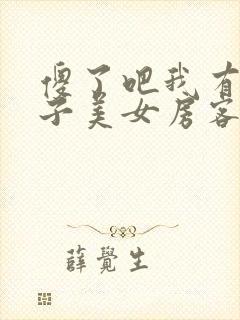 傻了吧我有
子美女房客
薛覺生